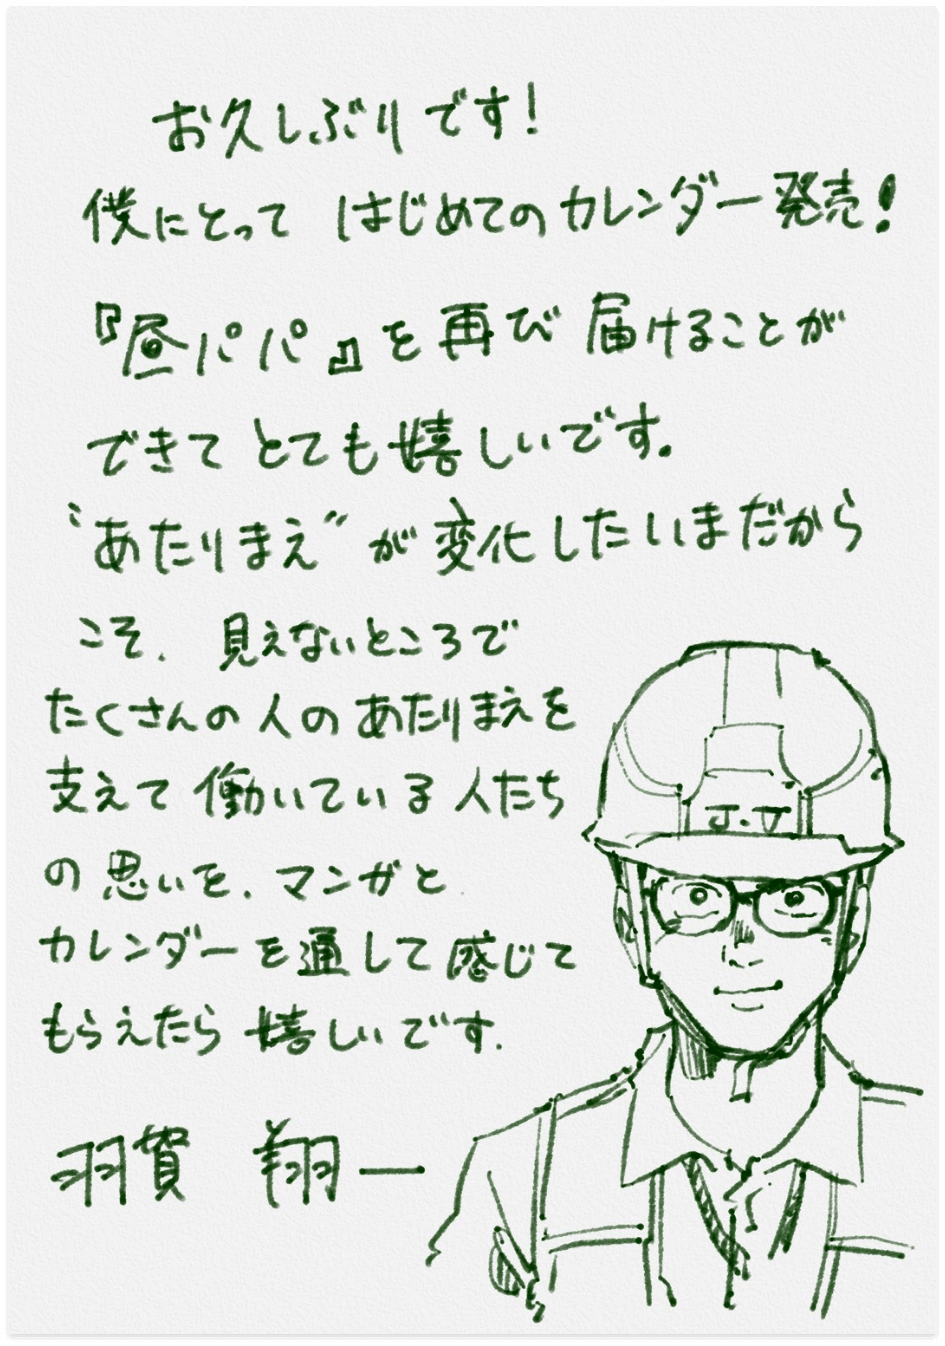 お久しぶりです！
僕にとって はじめてのカレンダー発売！
『昼パパ』を再び届けることが
できてとても嬉しいです。
“あたりまえ”が変化したいまだから
こそ、見えないところで
たくさんの人のあたりまえを
支えて働いている人たち
の思いを、マンガと
カレンダーを通して感じて
もらえたら嬉しいです。
J.V
羽賀 翔一